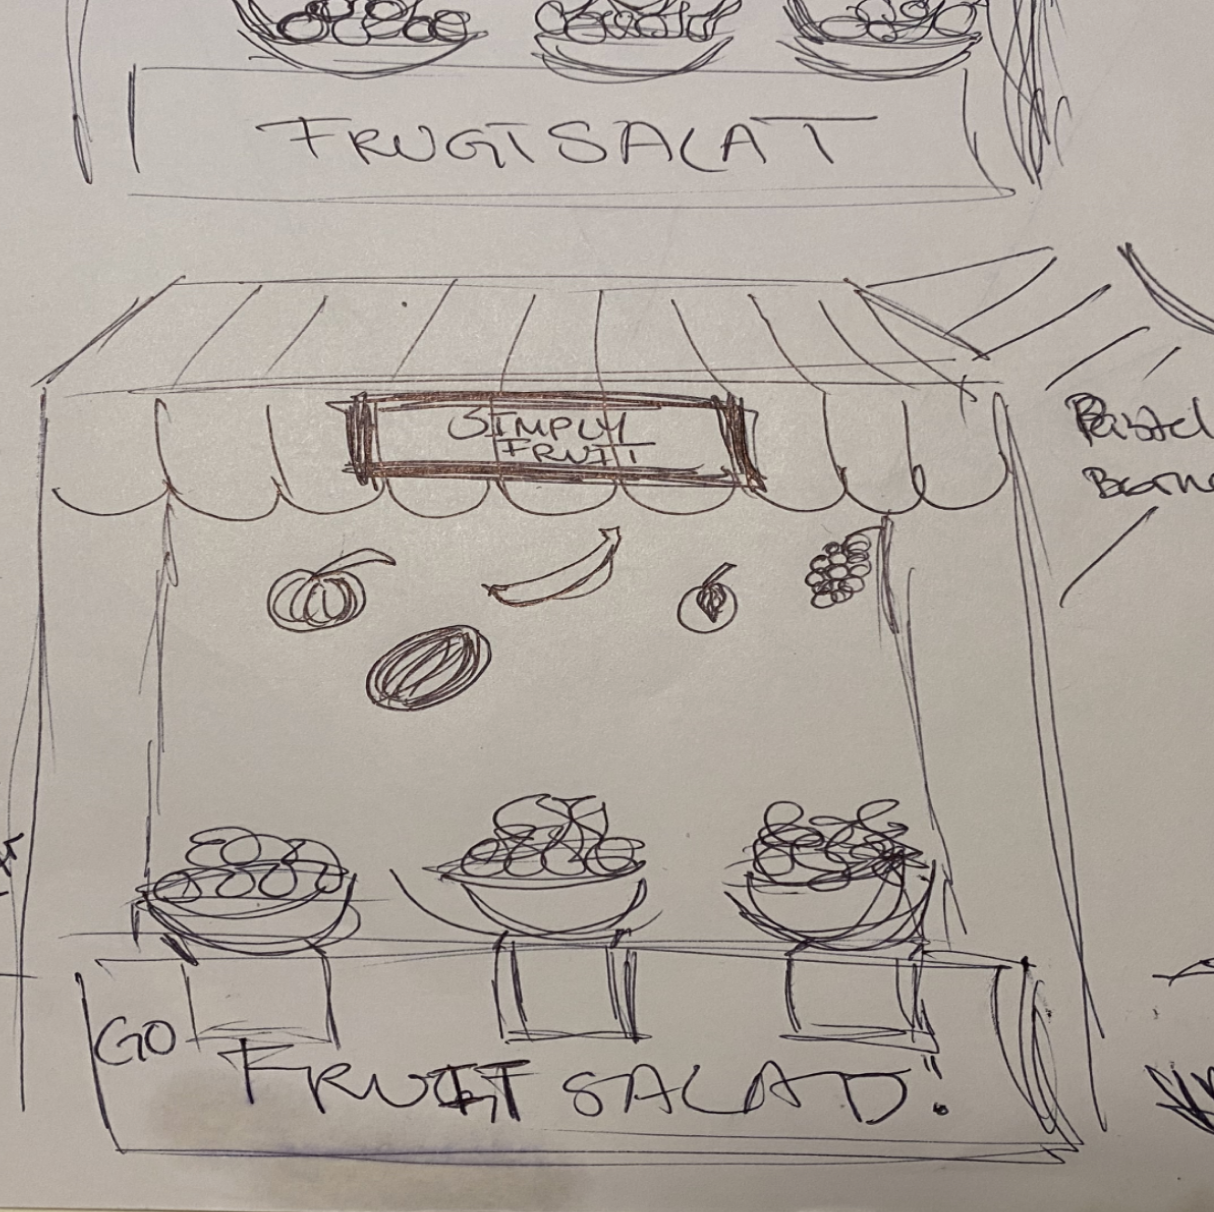 FRUGTSALAT
SIMPLY
FRUIT
Pastel
GO
FRUGT SALAD!